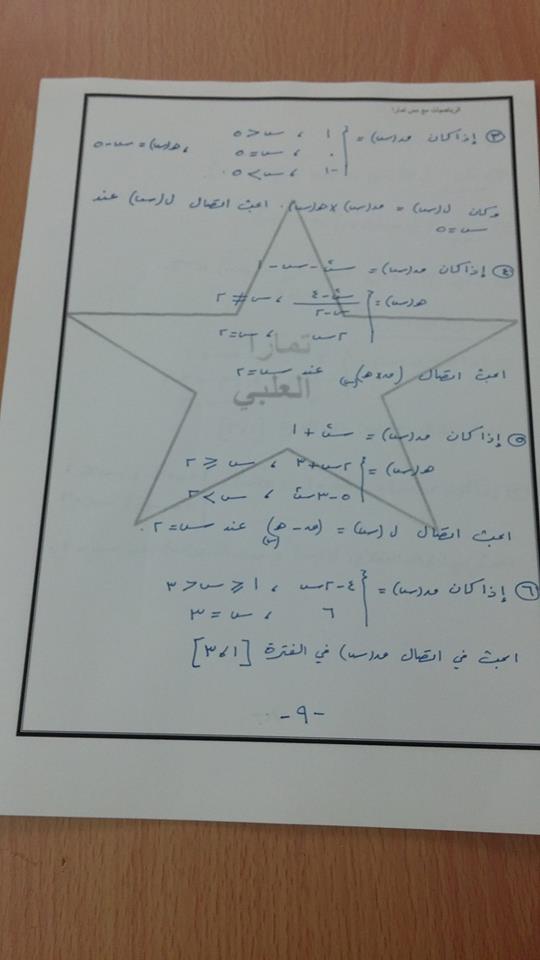 الرياضيات مع مس تمارا
٣ إذا كان ق(س) = { ١ ، س > ٥
٠ ، س = ٥ ، هـ(س) = س - ٥
-١ ، س < ٥
وكان ل(س) = ق(س) × هـ(س) . ابحث اتصال ل(س) عند
س = ٥
٤ إذا كان ق(س) = س² - س - ١
هـ(س) = { (س² - ٤)/(س - ٢) ، س ≠ ٢
٢س ، س = ٢
ابحث اتصال (ق × هـ)(س) عند س = ٢
تمارا
العلبي
٥ إذا كان ق(س) = س² + ١
هـ(س) = { ٢س + ٣ ، س ≤ ٢
٥ - ٣س² ، س < ٢
ابحث اتصال ل(س) = (ق - هـ)(س) عند س = ٢ .
٦ إذا كان ق(س) = { ٤ - ٢س ، ١ ≤ س < ٣
٦ ، س = ٣
ابحث في اتصال ق(س) في الفترة [١ ، ٣]
- ٩ -